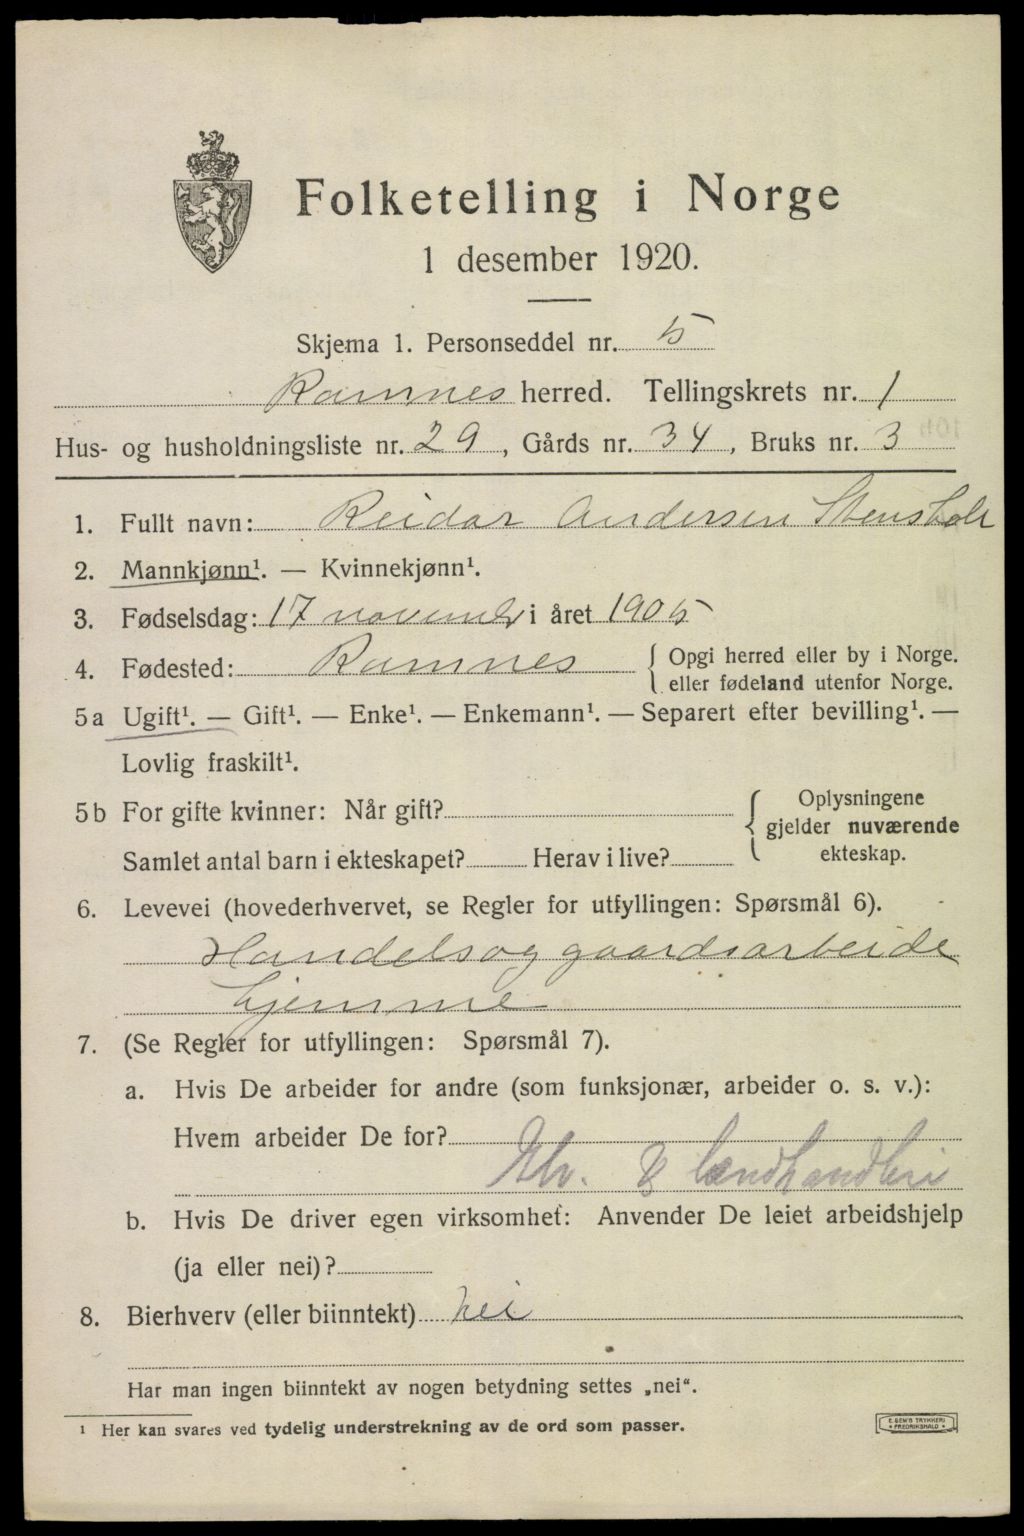 Folketelling i Norge
1 desember 1920.
Skjema 1. Personseddel nr. 5
Ramnes herred. Tellingskrets nr. 1
Hus- og husholdningsliste nr. 29, Gårds nr. 34, Bruks nr. 3
1. Fullt navn: Reidar Andersen Stensholt
2. Mannkjønn¹. — Kvinnekjønn¹.
3. Fødselsdag: 17 november i året 1905
4. Fødested: Ramnes { Opgi herred eller by i Norge.
eller fødeland utenfor Norge.
5a Ugift¹. — Gift¹. — Enke¹. — Enkemann¹. — Separert efter bevilling¹. —
Lovlig fraskilt¹.
5b For gifte kvinner: Når gift?
Samlet antal barn i ekteskapet? Herav i live?
Oplysningene
gjelder nuværende
ekteskap.
6. Levevei (hovederhvervet, se Regler for utfyllingen: Spørsmål 6).
Handels og gaardsarbeide
hjemme
7. (Se Regler for utfyllingen: Spørsmål 7).
a. Hvis De arbeider for andre (som funksjonær, arbeider o. s. v.):
Hvem arbeider De for?
landhandleri
b. Hvis De driver egen virksomhet: Anvender De leiet arbeidshjelp
(ja eller nei)?
8. Bierhverv (eller biinntekt) nei
Har man ingen biinntekt av nogen betydning settes „nei“.
¹ Her kan svares ved tydelig understrekning av de ord som passer.
E. SEM'S TRYKKERI
FREDRIKSHALD